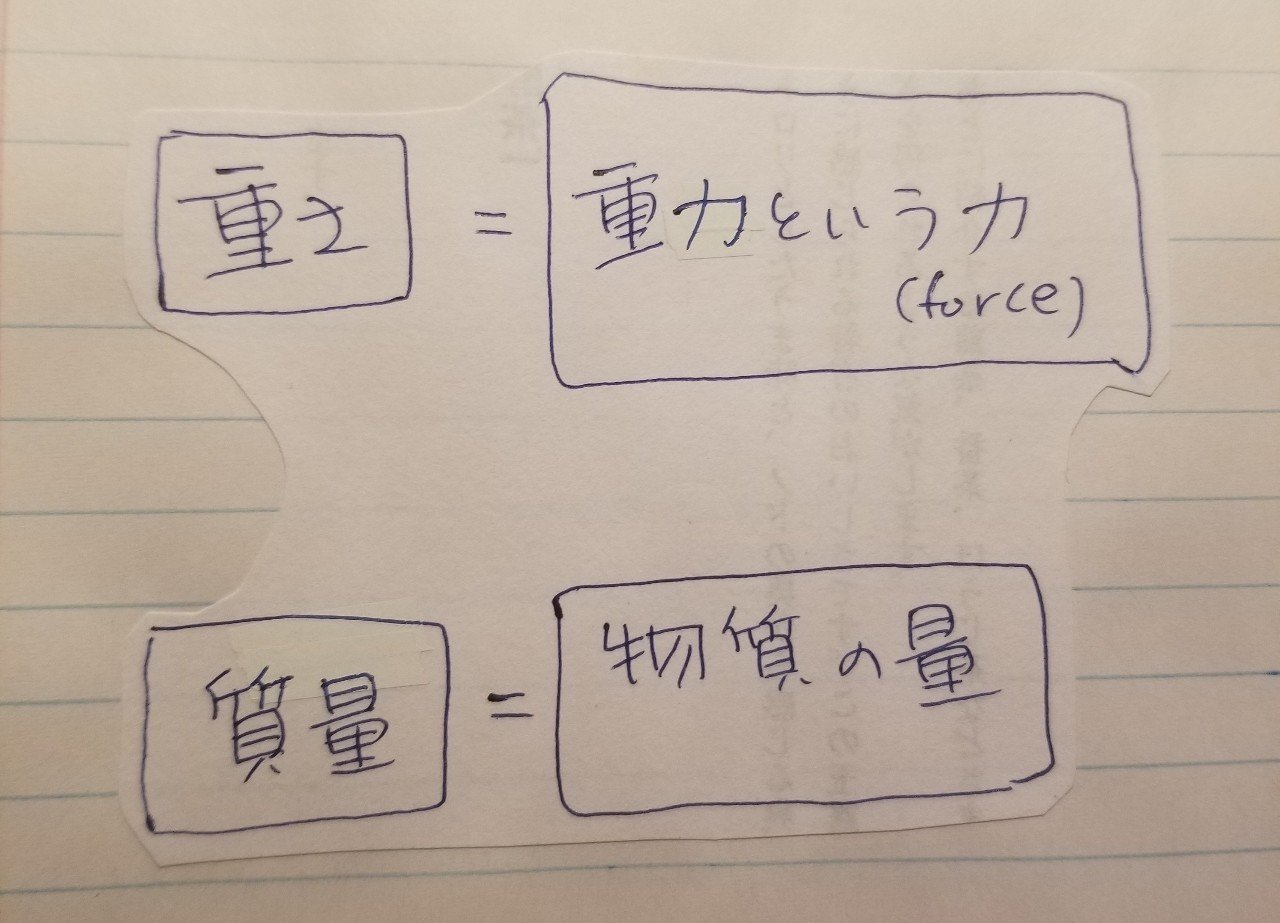 重さ = 重力という力
(force)
質量 = 物質の量